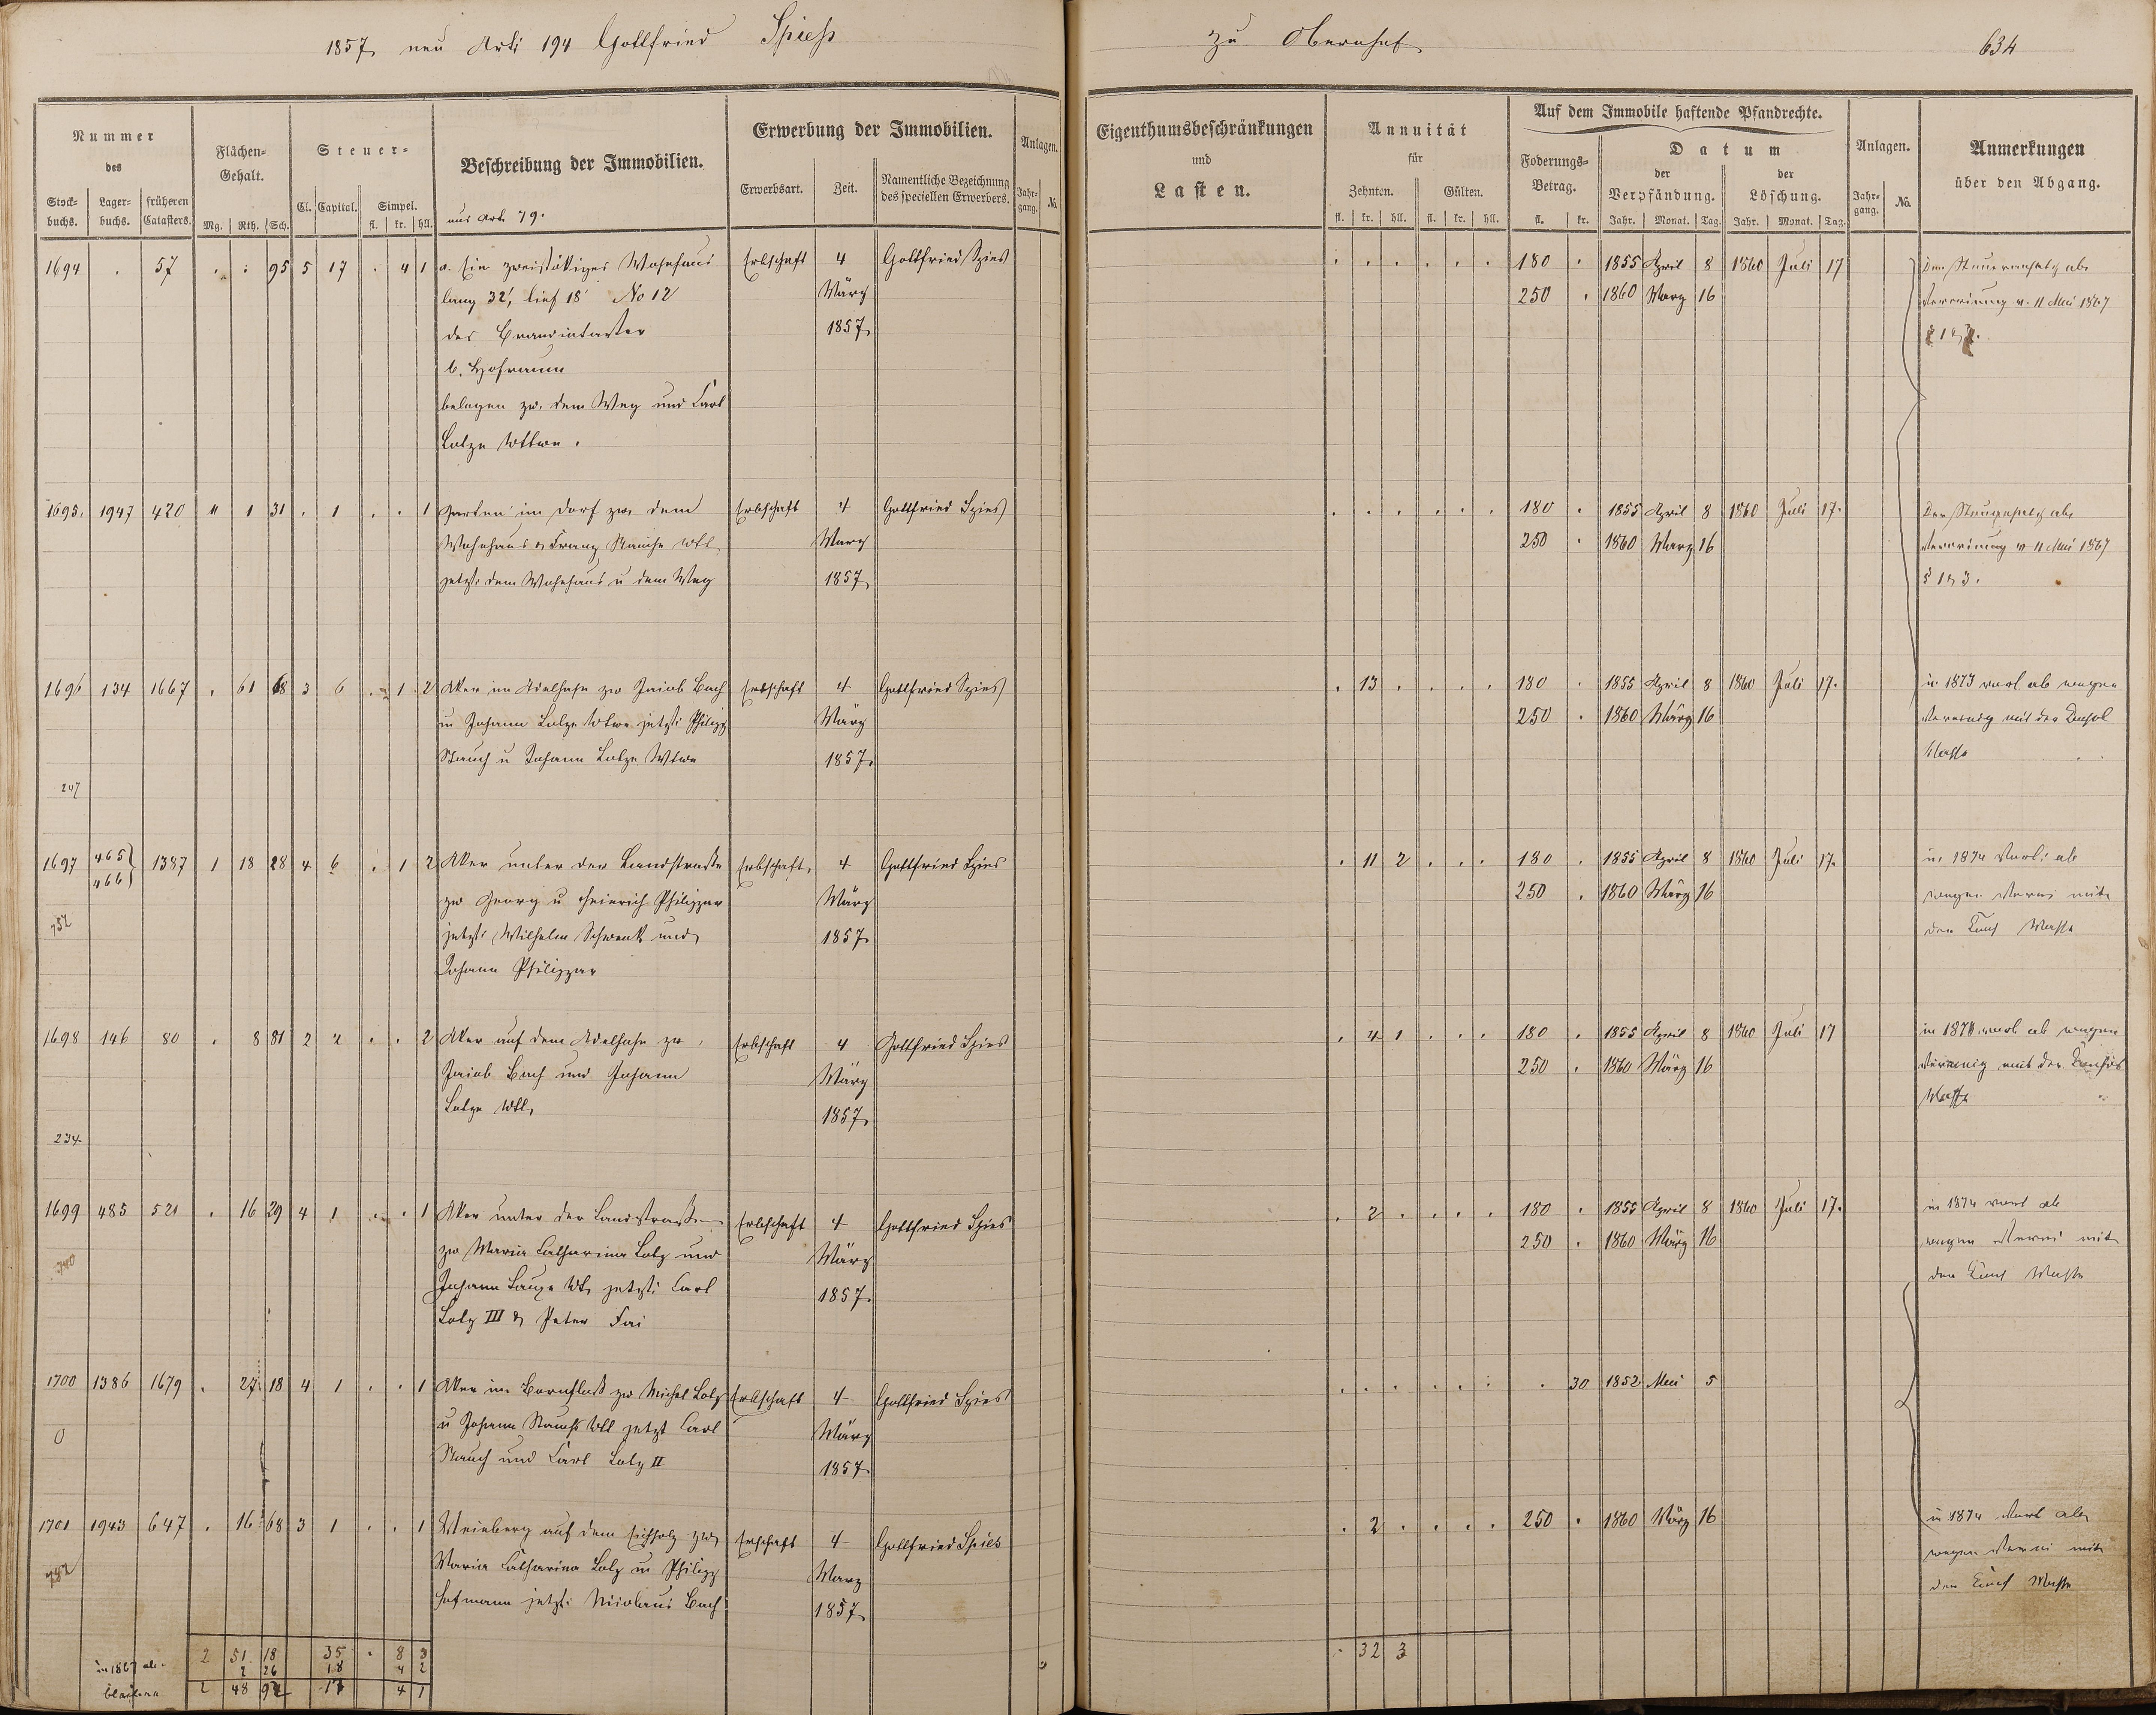 1857, neu Arti 194 Gottfried Spiess
zu Obernhof
634
Nummer
des
Stock-
buchs.
Lager-
buchs.
früheren
Catasters.
Flächen-
Gehalt.
Mg. Rth. Sch.
Steuer-
Cl. Capital. Simpel.
fl. kr. hll.
Beschreibung der Immobilien.
aus Art. 79.
Erwerbung der Immobilien.
Erwerbsart. Zeit.
Namentliche Bezeichnung
des speciellen Erwerbers.
Anlagen.
Jahr-
gang.
No.
Eigenthumsbeschränkungen
und
Lasten.
Annuität
für
Zehnten. Gülten.
fl. kr. hll. fl. kr. hll.
Auf dem Immobile haftende Pfandrechte.
Foderungs-
Betrag.
fl. kr.
Datum
der
Verpfändung.
Jahr. Monat. Tag.
der
Löschung.
Jahr. Monat. Tag.
Anlagen.
Jahr-
gang.
No.
Anmerkungen
über den Abgang.
1694 . 57 . . 95 5 17 . 4 1 a. Ein zweistökiges Wohnhaus Erbschaft 4 Gottfried Spies . . . . . . 180 . 1855 April 8 1860 Juli 17
lang 32', tief 18' No 12 März 250 . 1860 Marz 16 v. 11 Mai 1867
des Brandcataster 1857,
b. Hofraum
belegen zw. dem Weg und Carl
Lotze Wttwe.
1695. 1947 420 " 1 31 . 1 . . 1 Garten im Dorf zw. dem Erbschaft 4 Gottfried Spies . . . . . . 180 . 1855 April 8 1860 Juli 17.
Wohnhaus & Franz Wtt. Marz 250 . 1860 Marz 16 v 11 Mai 1867
jetzt: dem Wohnhaus u dem Weg 1857,
§ 1 & 3.
1696 134 1667 . 61 68 3 6 . . 1 2 Aker im Adelhahn zw Jacob Bach Erbschaft 4 Gottfried Spies . 13 . . . . 180 . 1855 April 8 1860 Juli 17. in 1873 ab wegen
u Johann Lotze Wtwe jetzt: Philipp März 250 . 1860 März 16 mit der Consol
Stauch u Johann Lotze Wtwe 1857. Masse
247
1697 465 466 1387 1 18 28 4 6 . 1 2 Aker unter der Landstrasse Erbschaft, 4 Gottfried Spies . 11 2 . . . 180 . 1855 April 8 1860 Juli 17. in 1874 ab
zw Georg u Heinrich Philippar März 250 . 1860 März 16 wegen mit
752 jetzt: Wilhelm Schwenk und 1857, der Masse
Johann Philippar
1698 146 80 . 8 81 2 2 . . 2 Aker auf dem Adelhahn zw Erbschaft 4 Gottfried Spies . 4 1 . . . 180 . 1855 April 8 1860 Juli 17 in ab wegen
Jacob Bach und Johann März 250 . 1860 März 16 mit der
Lotze Wtt, 1857, Masse
234
1699 485 521 . 16 29 4 1 . . 1 Aker unter der Landstrasse Erbschaft 4 Gottfried Spies . 2 . . . . 180 . 1855 April 8 1860 Juli 17. in 1874 ab
zw Maria Catharina Lotz und März 250 . 1860 März 16 wegen mit
Johann Wtt, jetzt: Carl 1857. der Masse
Lotz III & Peter
1700 1386 1679 . 27 18 4 1 . . 1 Aker im zw Michel Lotz Erbschaft 4 Gottfried Spies . . . . . . . 30 1852 Mai 5
0 u Johann Stauchs Wtt jetzt Carl März
Stauch und Carl Lotz II 1857
1701 1943 647 . 16 68 3 1 . . 1 Weinberg auf dem Eichholz zw, Erschaft 4 Gottfried Spies . 2 . . . . 250 . 1860 März 16 in 1874 ab
Maria Catharina Lotz u Philipp Marz wegen mit
782 Hofmann jetzt: Nicolaus Bach 1857, der Masse
2 51 18 35 . 8 3 . 32 3
in 1867 ab. 2 26 18 4 2
2 48 92 17 4 1